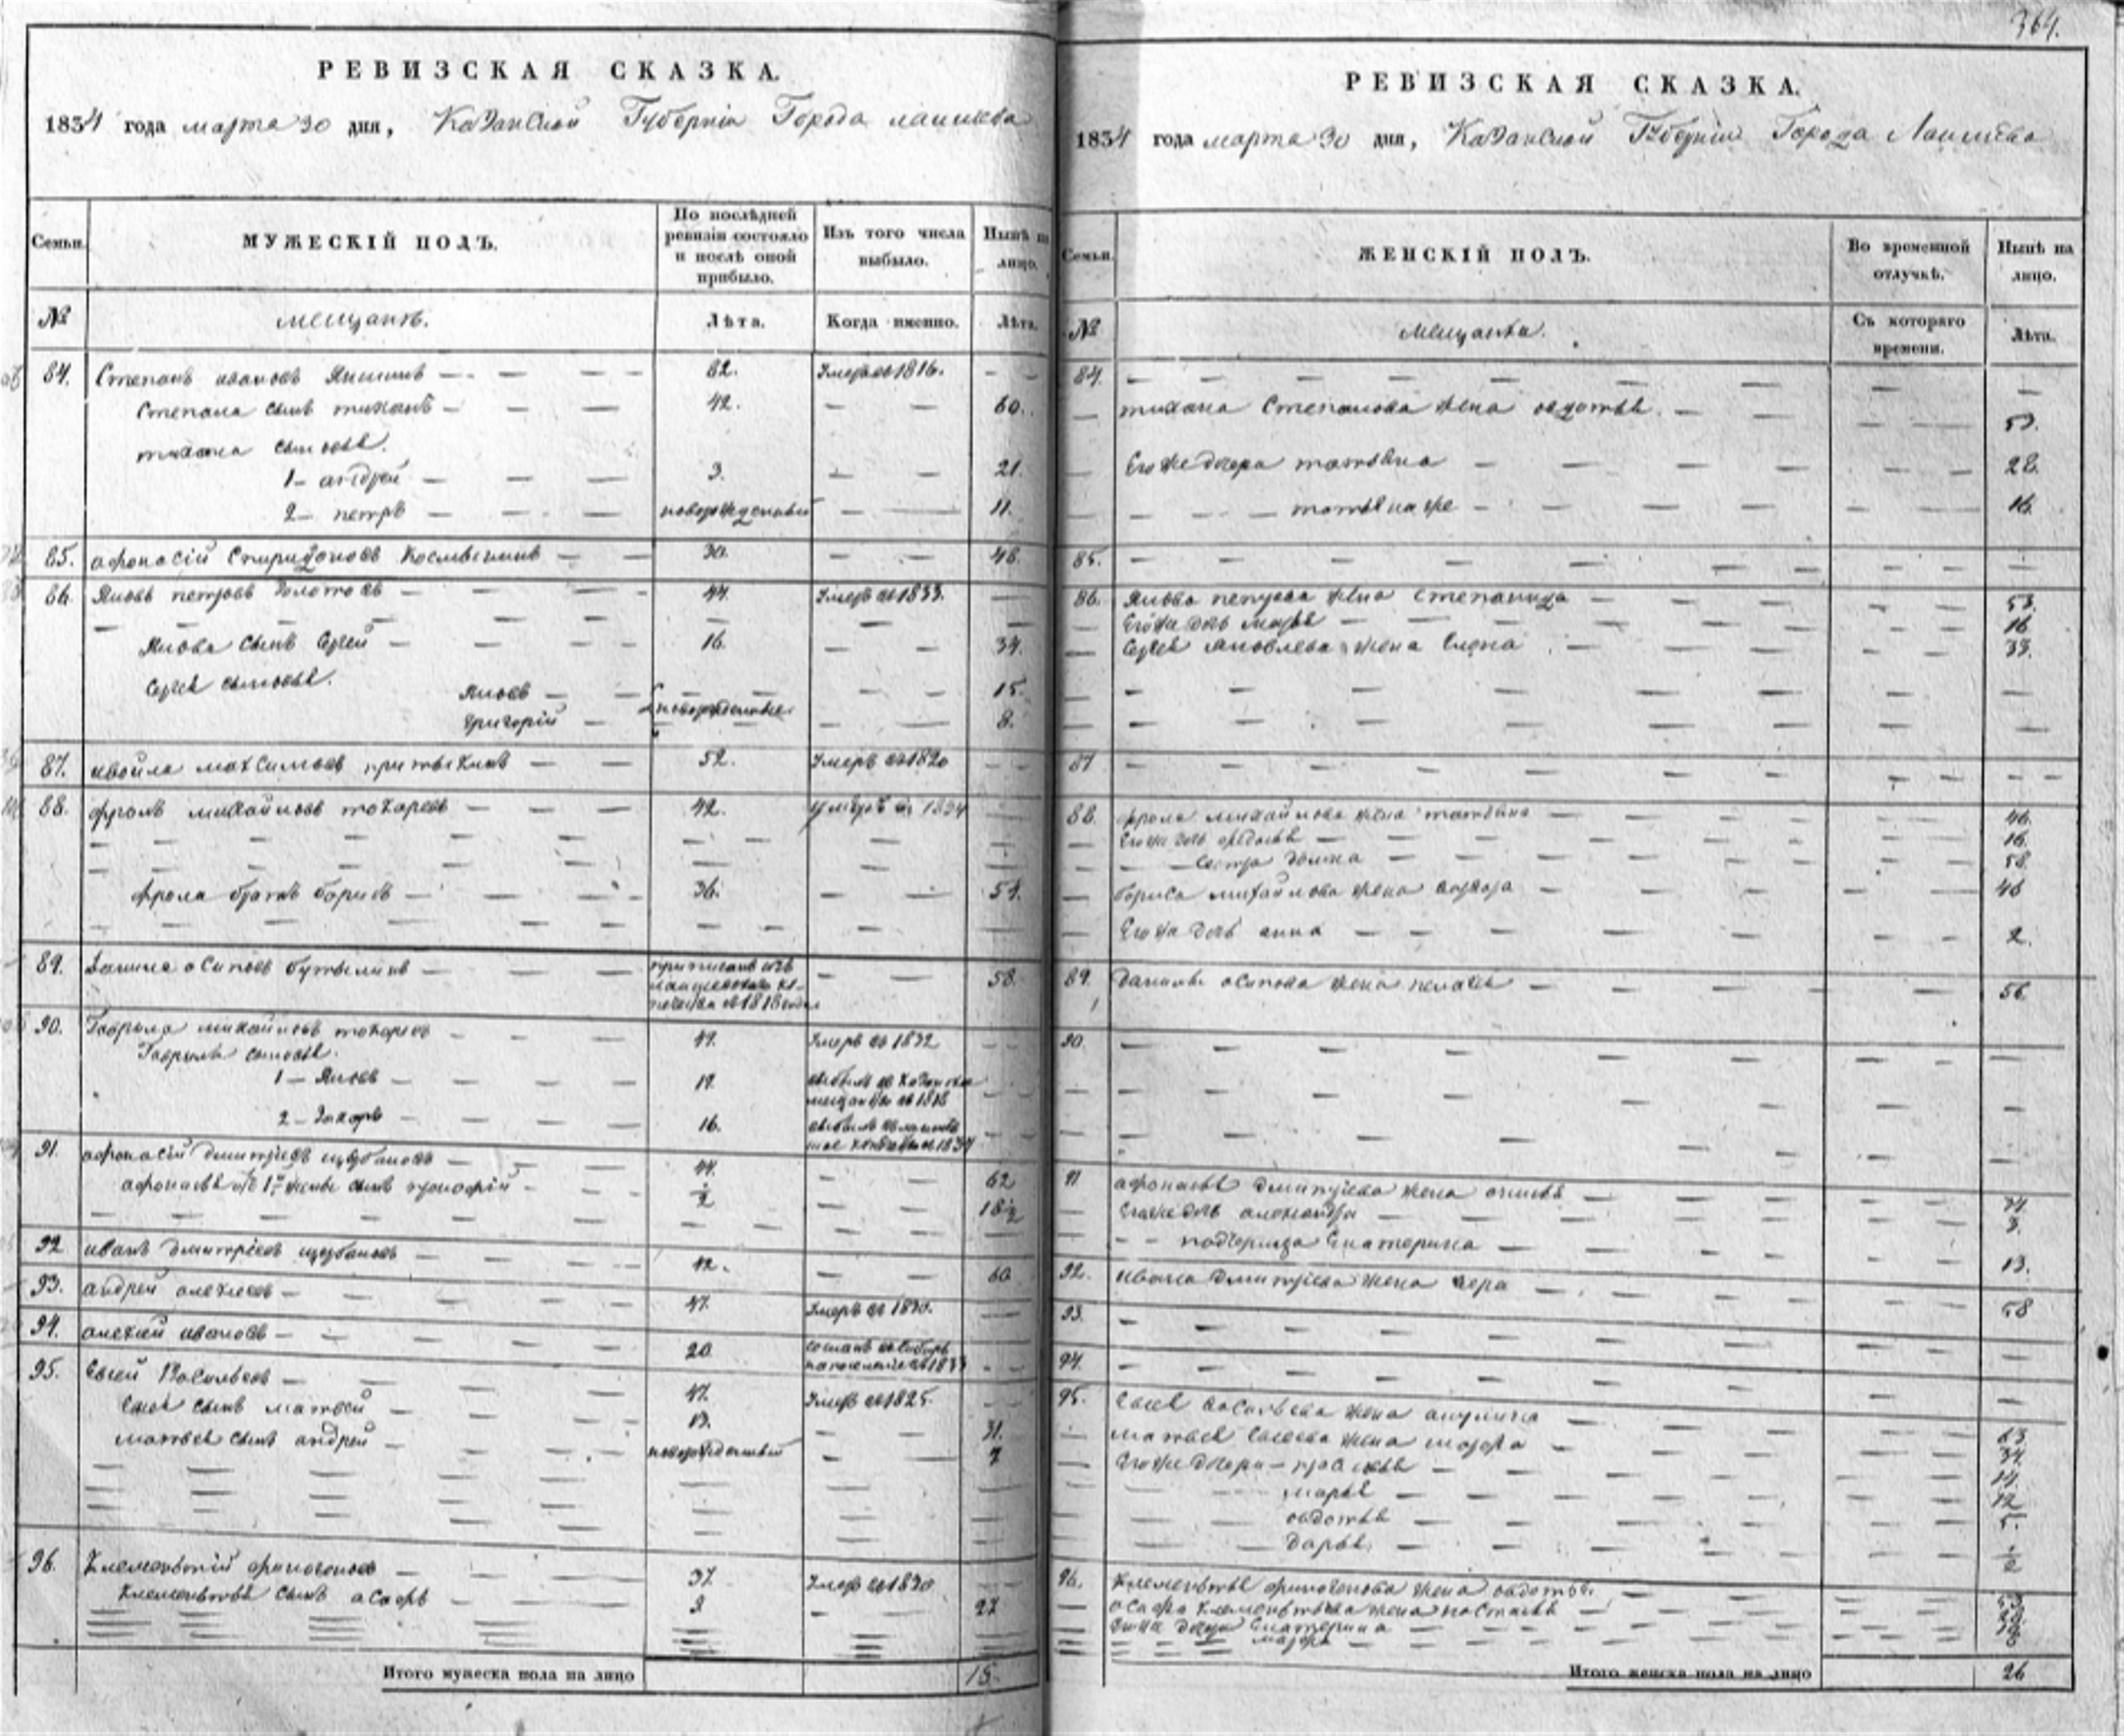 364.
РЕВИЗСКАЯ СКАЗКА.
1834 года марта 30 дня, Казанской Губернiи Города лаишева
Семьи.
МУЖЕСКІЙ ПОЛЪ.
По послѣдней ревизіи состояло и послѣ оной прибыло.
Изъ того числа выбыло.
Нынѣ на лицо.
№
мещанъ.
Лѣта.
Когда именно.
Лѣта.
84. Степанъ ивановъ 62. Умеръ въ 1816.
Степана сынъ 42. 60.
сыновья.
1 андрей 3. 21.
2 петръ новорожденный 11.
85. афонасій Спиридоновъ 30. 48.
86. Яковъ петровъ Золотовъ 44. Умеръ въ 1833.
Якова сынъ Сергей 16. 34.
Сергея сыновья.
Яковъ 15.
новорожденные.
григорій 8.
87. максимовъ 52. Умеръ въ 1820
88. фролъ михайловъ токаревъ 42. Умеръ въ 1834
фрола братъ борисъ 36. 54.
89. Данила осиповъ бутылинъ 58.
приписанъ изъ
въ 1818 году
90. Гаврила михайловъ токаревъ 49. Умеръ въ 1832
Гаврилы сыновья.
1 Яковъ 19. въ 1818
2 Захаръ 16. въ 1834
91. афонасій дмитріевъ щербаковъ 44. 62
афонасья 1й жены сынъ ½ 18½
92 иванъ дмитріевъ щербаковъ 42. 60
93. андрей алексеевъ 47. Умеръ въ 1830.
94. алексей ивановъ 20 сосланъ въ Сибирь на поселеніе въ 1833
95. Евсей Васильевъ 47. Умеръ въ 1825.
Евсея сынъ матвей 13. 31.
матвея сынъ андрей новорожденный 7
96. Клементій финогеновъ 37. Умеръ въ 1830
Клементья сынъ асафъ 9 27
Итого мужеска пола на лицо 15.
РЕВИЗСКАЯ СКАЗКА.
1834 года марта 30 дня, Казанской Губернiи Города Лаишева
Семьи.
ЖЕНСКІЙ ПОЛЪ.
Во временной отлучкѣ.
Нынѣ на лицо.
№
Мещанки.
Съ котораго времени.
Лѣта.
84.
Степанова жена авдотья.
Его же дочери татьяна 28.
татьяна же 16.
85.
86. Якова петрова жена степанида 53.
Его же дочь марья 16
Сергея Яковлева жена Елена 33.
87
88. фрола михайлова жена татьяна 46.
Его же дочь федосья 16.
Сестра домна 58.
бориса михайлова жена варвара 46
Его же дочь анна 2.
89. данилы осипова жена пелагея 56.
90.
91 афонасья дмитріева жена анисья 34.
Его же дочь александра 3.
подчерица Екатерина 13.
92. ивана дмитріева жена вера 58
93.
94.
95. Евсея васильева жена акулина 63.
матвея Евсеева жена марфа 34.
Его же дочери прасковья 14.
марья 12
авдотья 5.
дарья. ½
96. Клементья финогенова жена авдотья.
асафа Клементьева жена настасья
Его же дочери Екатерина
марфа
Итого женска пола на лицо 26